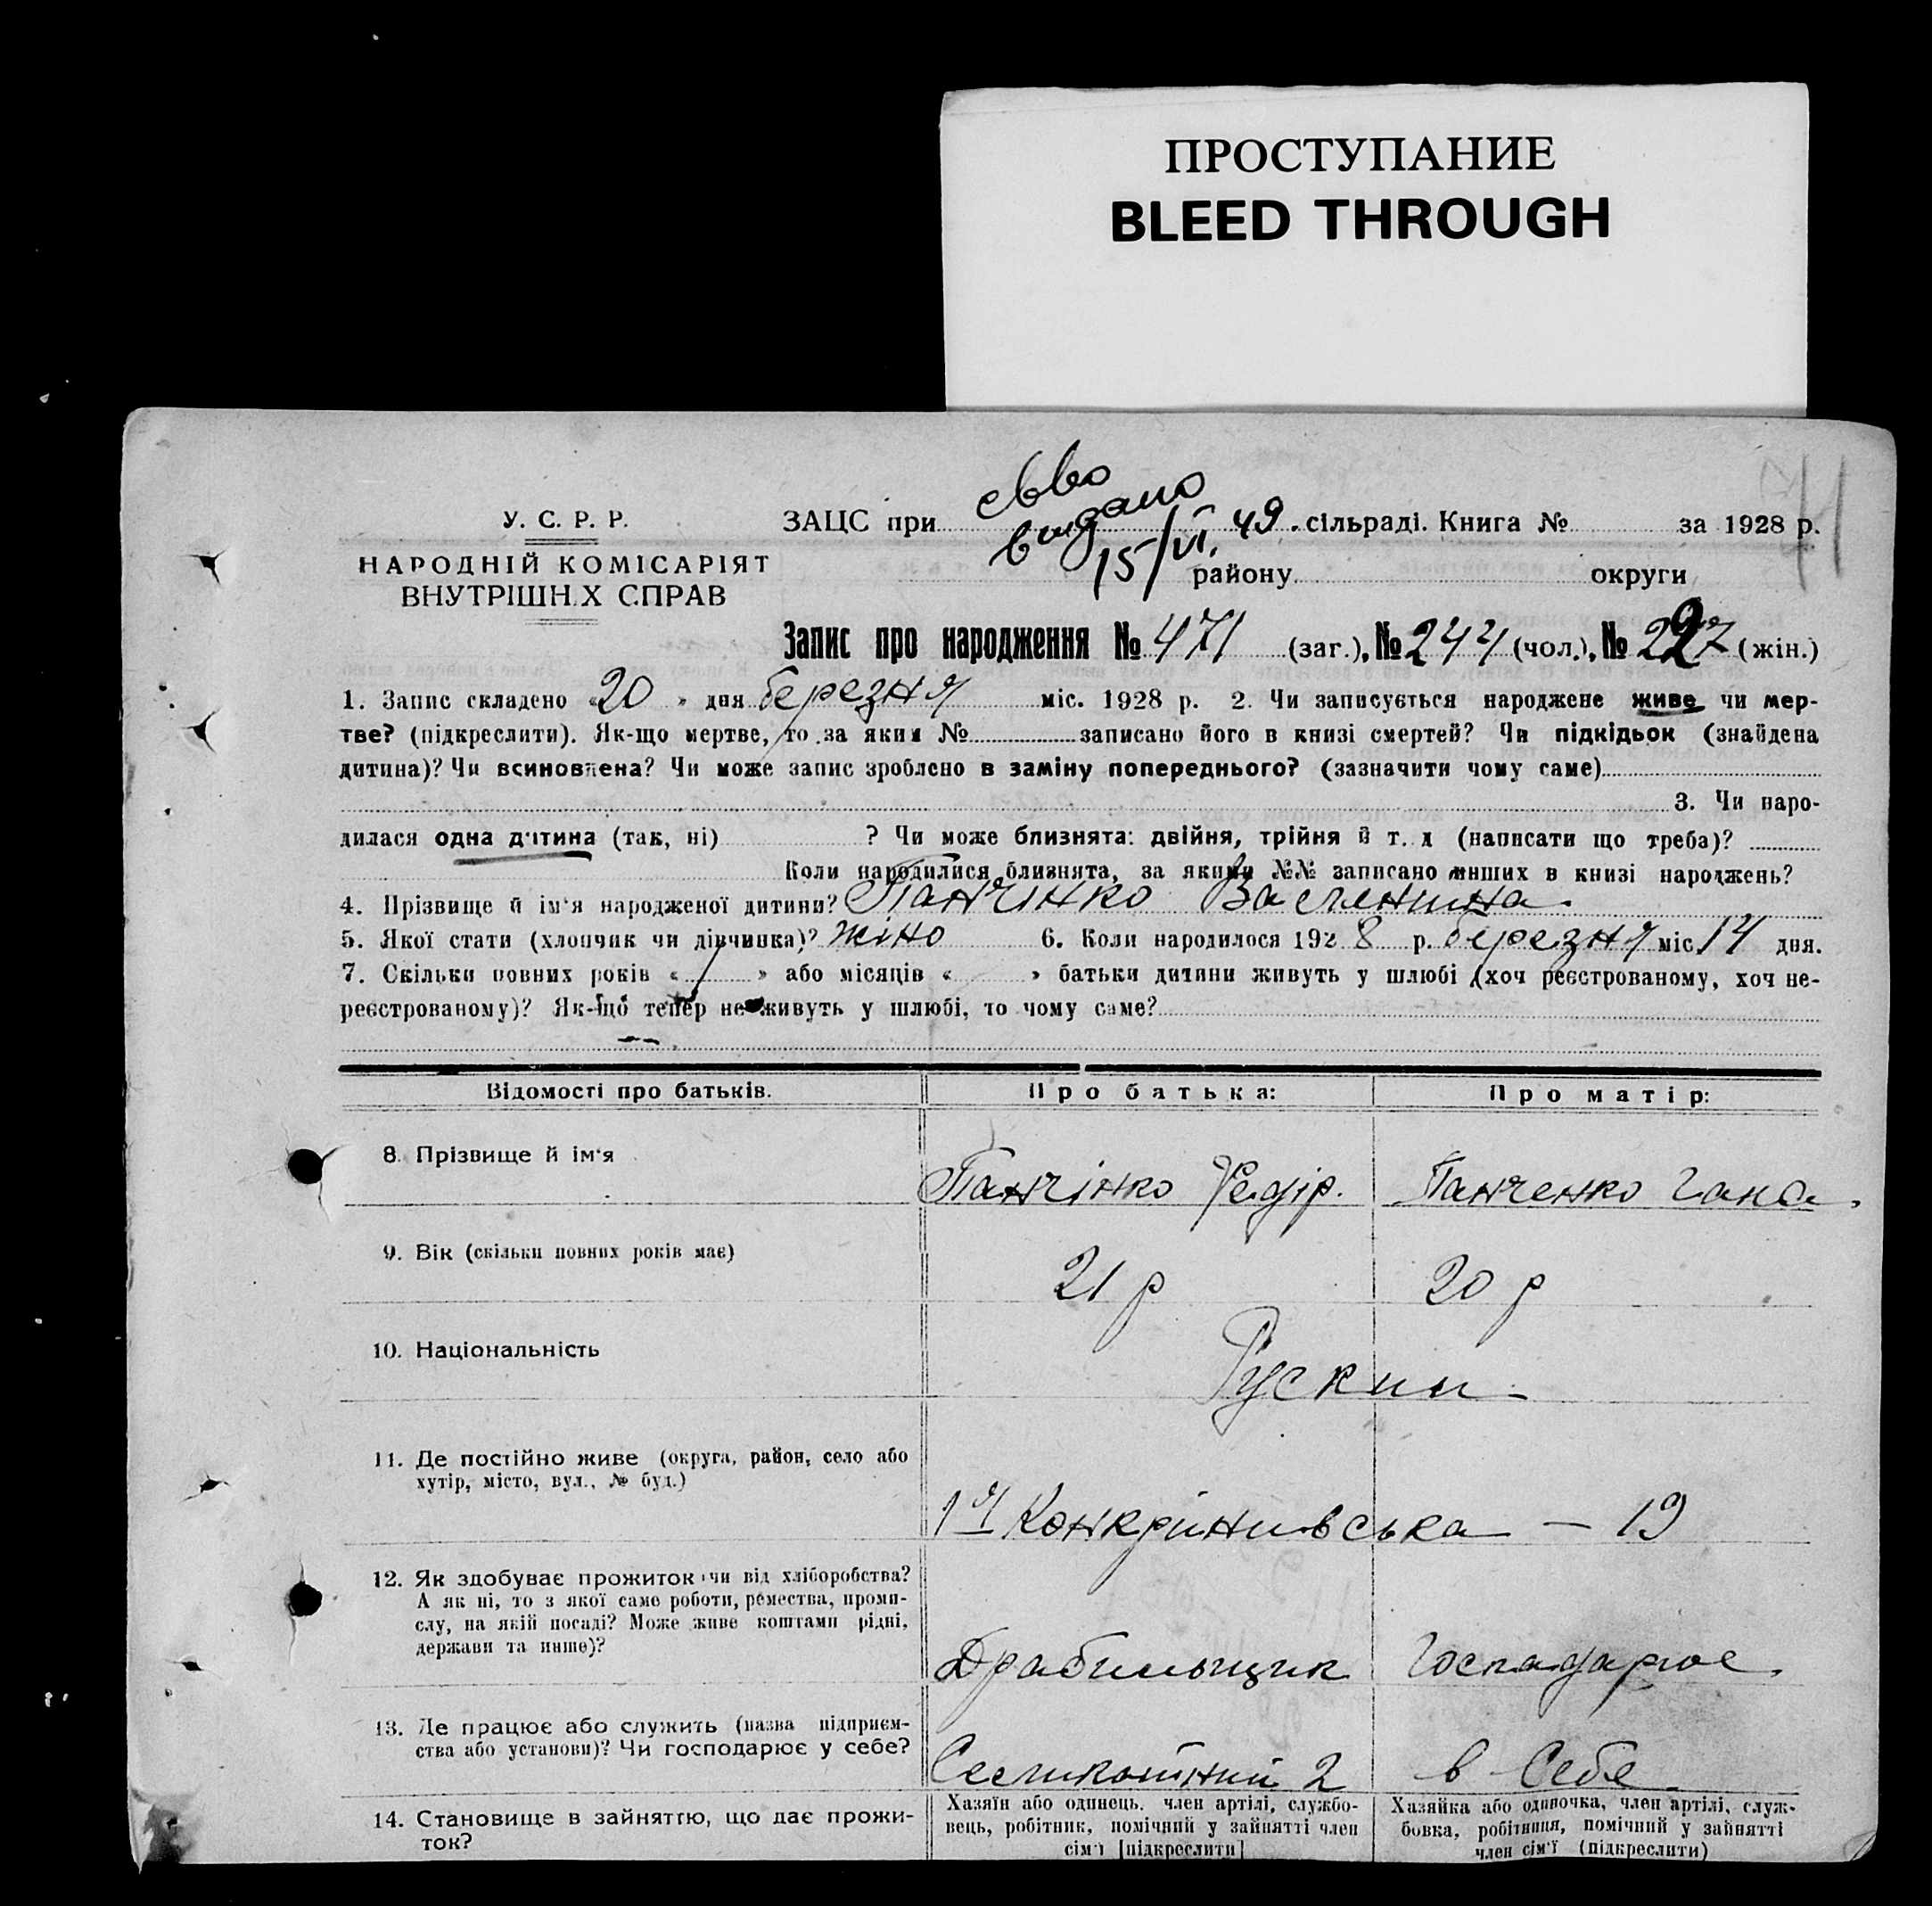 ПРОСТУПАНИЕ
BLEED THROUGH
У. С. Р. Р.
НАРОДНІЙ КОМІСАРІЯТ
ВНУТРІШН.Х СПРАВ
св-во
видано
15/VI. 49
ЗАЦС при сільраді. Книга № за 1928 р.
району округи
Запис про народження № 471 (заг.), № 244 (чол.), № 227 (жін.)
1. Запис складено «20» дня березня міс. 1928 р. 2. Чи записується народжене живе чи мер-
тве? (підкреслити). Як-що мертве, то за яким № записано його в книзі смертей? Чи підкідьок (знайдена
дитина)? Чи всиновлена? Чи може запис зроблено в заміну попереднього? (зазначити чому саме)
3. Чи наро-
дилася одна дитина (так, ні) ? Чи може близнята: двійня, трійня й т. д (написати що треба)?
Коли народилися близнята, за якими №№ записано инших в книзі народжень?
4. Прізвище й ім'я народженої дитини? Панчінко Валентина
5. Якої стати (хлопчик чи дівчинка)? жіно 6. Коли народилося 1928 р. березня міс 14 дня.
7. Скільки повних років « 1 » або місяців « » батьки дитини живуть у шлюбі (хоч реєстрованому, хоч не-
реєстрованому)? Як-що тепер не живуть у шлюбі, то чому саме?
Відомості про батьків. Про батька: Про матір:
8. Прізвище й ім'я Панчінко Федір. Панченко Гана.
9. Вік (скільки повних років має) 21 р 20 р
10. Національність Руские
11. Де постійно живе (округа, район, село або
хутір, місто, вул., № буд.)
1я Конкринивська — 19
12. Як здобуває прожиток чи від хліборобства?
А як ні, то з якої саме роботи, ремества, проми-
слу, на якій посаді? Може живе коштами рідні,
держави та инше)?
Драбильщик Госпадарює.
13. Де працює або служить (назва підприєм-
ства або установи)? Чи господарює у себе?
2 в Себе
14. Становище в зайняттю, що дає прожи-
ток?
Хазяїн або одинець. член артілі, службо-
вець, робітник, помічний у зайнятті член
сім'ї [підкреслити]
Хазяйка або одиночка, член артілі, служ-
бовка, робітниця, помічний у зайнятті
член сім'ї (підкреслити)